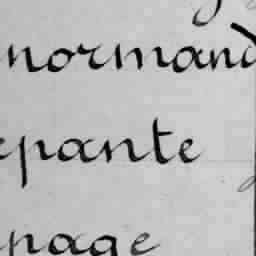 normand
epante
page